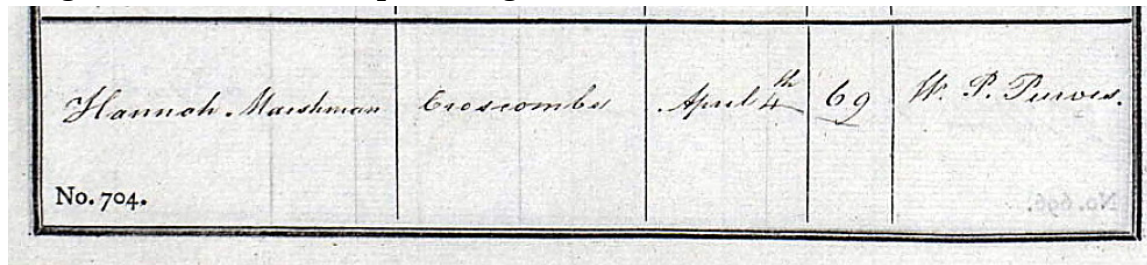 Hannah Marshman Croscombe April 4th 69 W. P. Purvis.
No. 704.
No. 696.